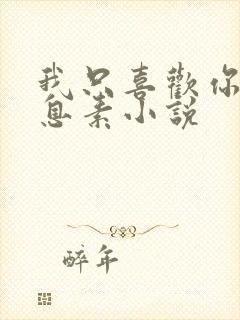 我只喜歡你
息素小說
醉年